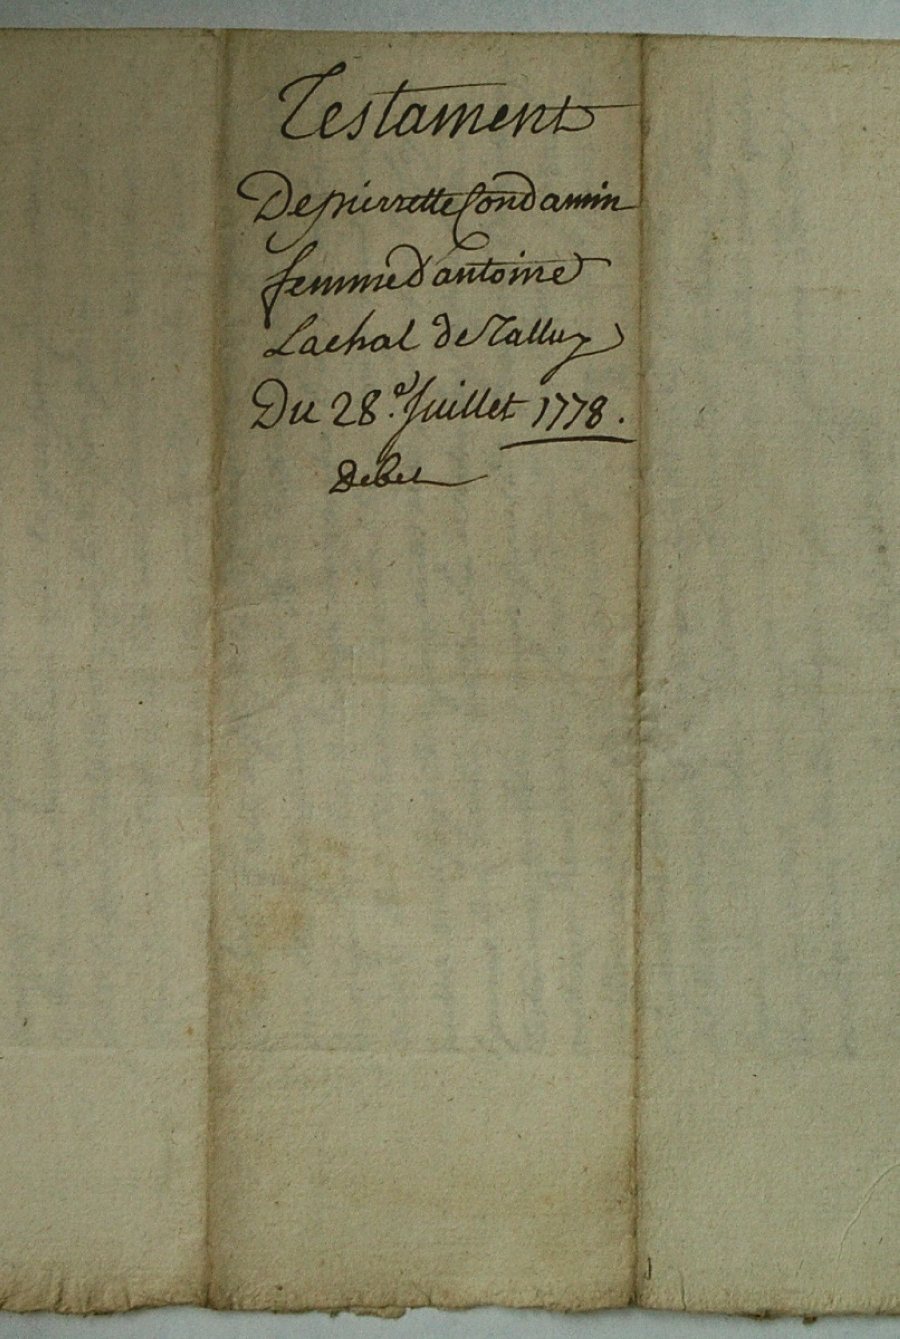 Testament
De pierrette Condamin
femme d'antoine
Lachal de Talluy
Du 28.e Juillet 1778.
Debet